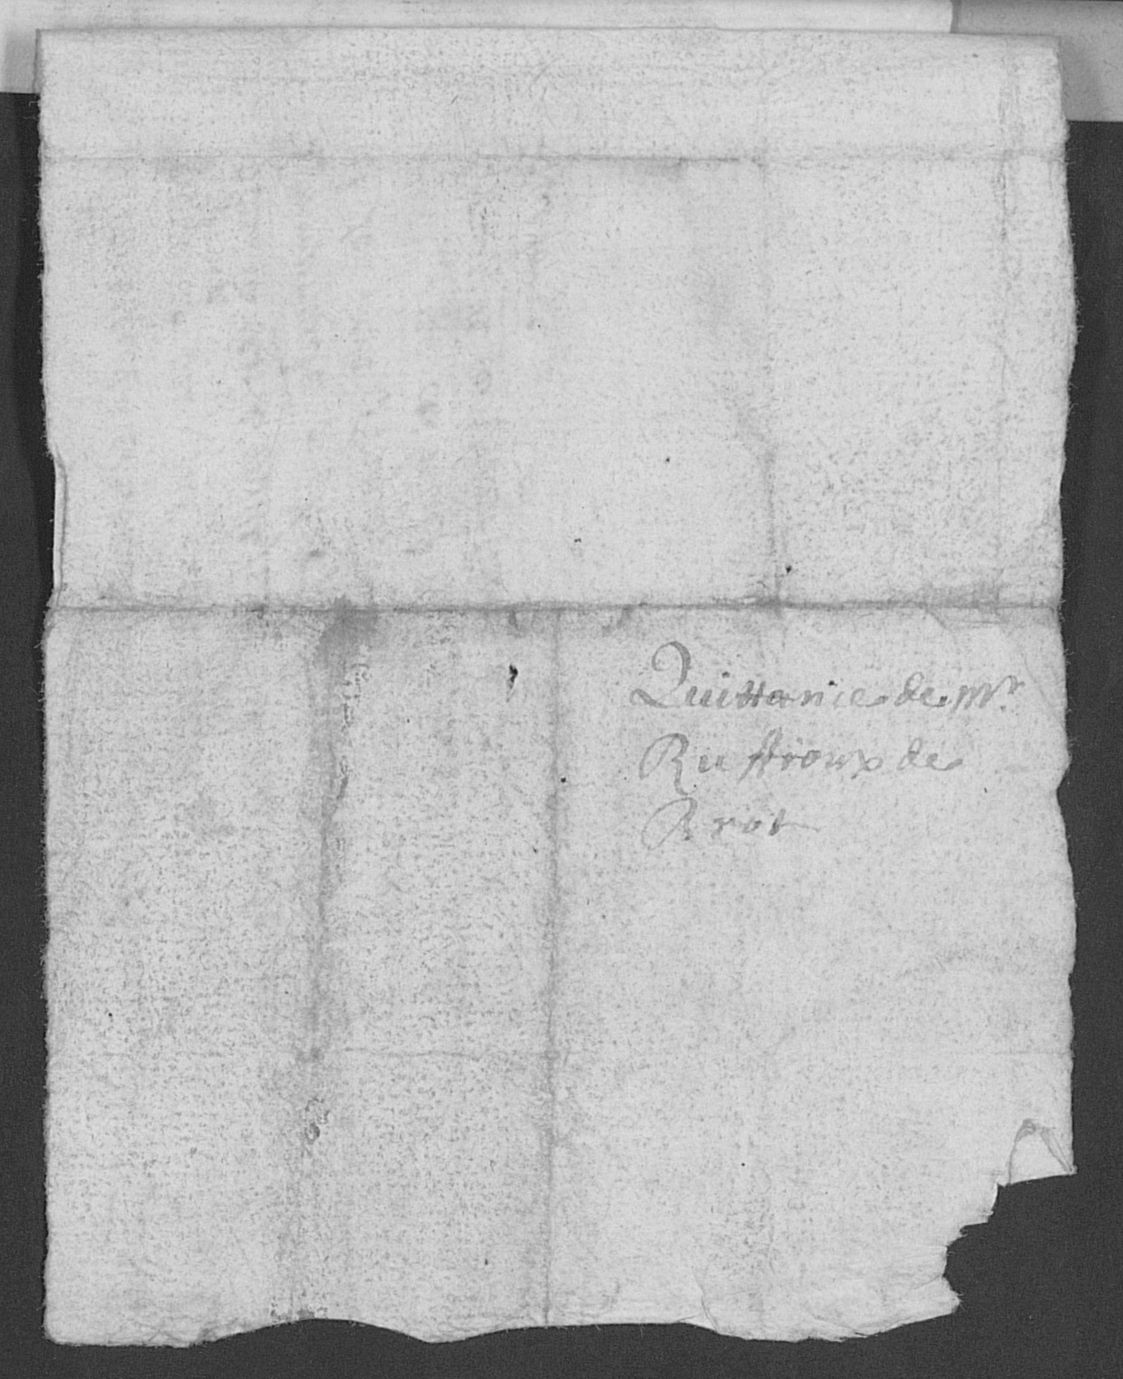 Quittance de Mr.
Rustroux de
Brot